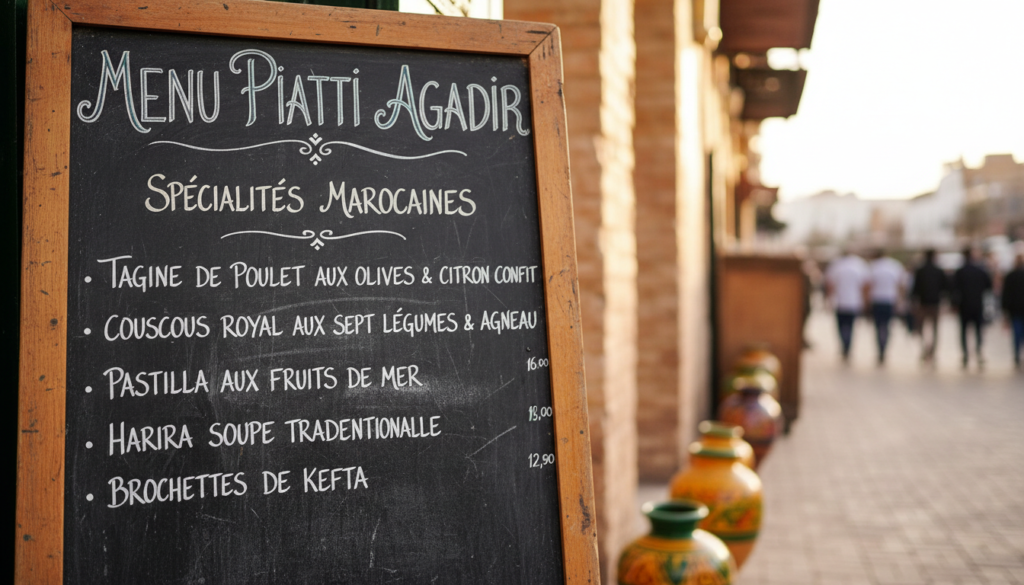 MENU PIATTI AGADIR
SPÉCIALITÉS MAROCAINES
• TAGINE DE POULET AUX OLIVES & CITRON CONFIT
• COUSCOUS ROYAL AUX SEPT LÉGUMES & AGNEAU
• PASTILLA AUX FRUITS DE MER 16,00
• HARIRA SOUPE TRADENTIONALLE 18,00
• BROCHETTES DE KEFTA 12,90